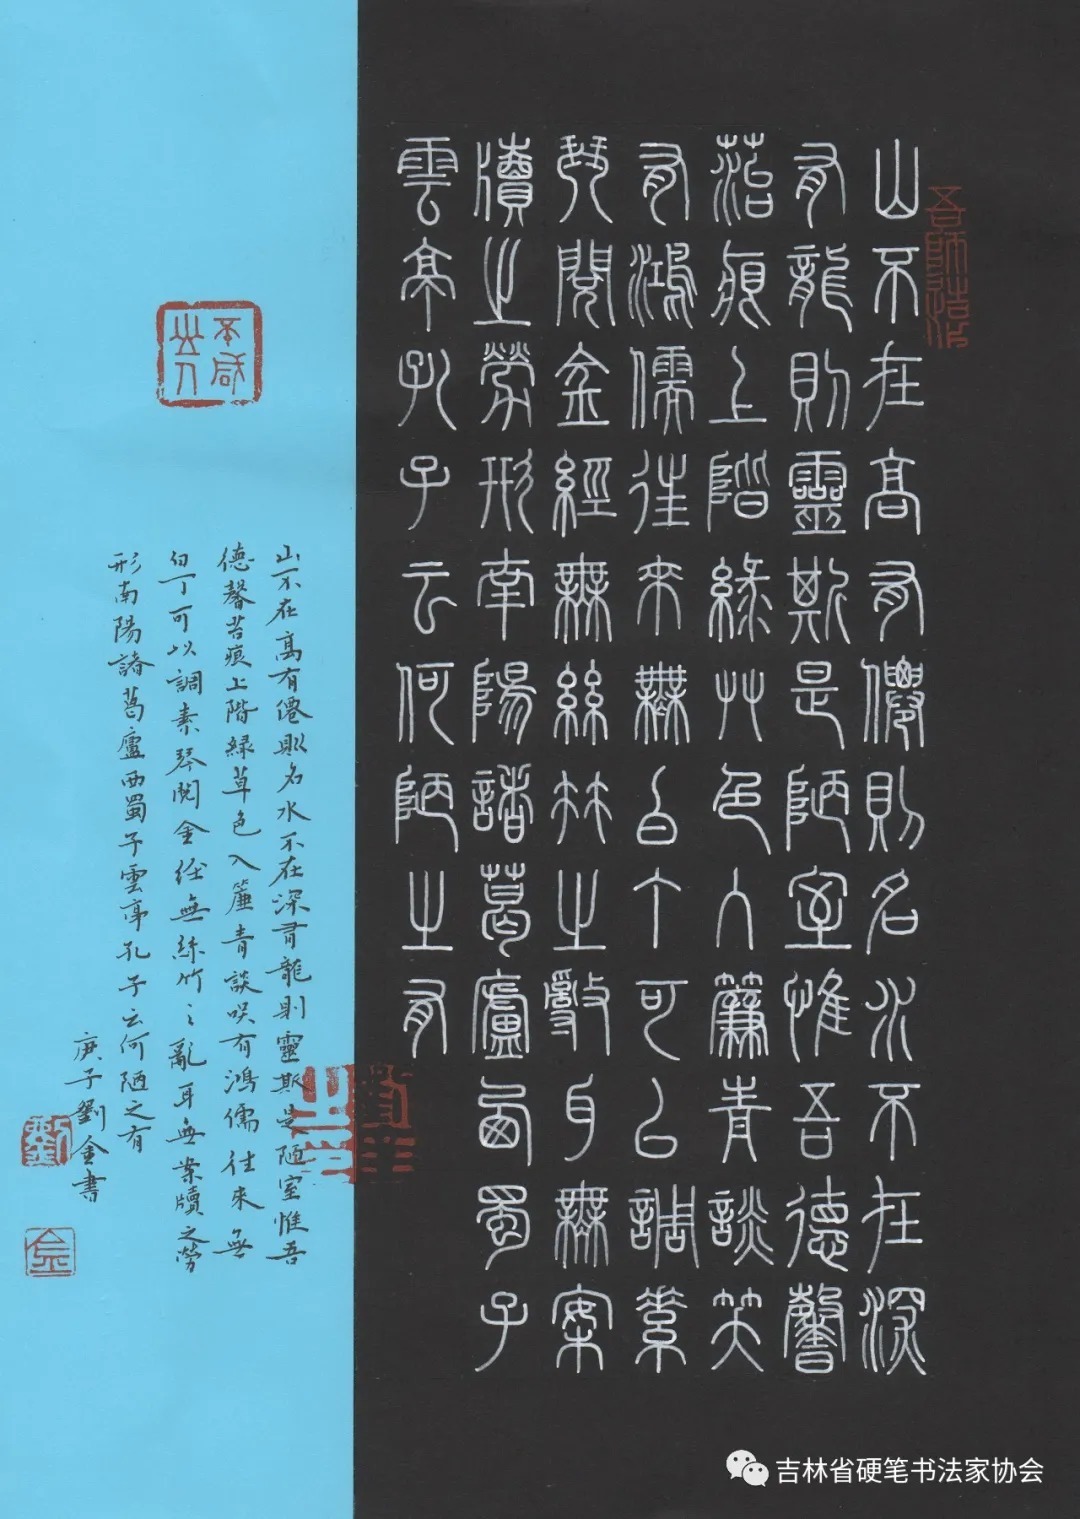 吾師造化
山不在高有僊則名水不在深
有龍則靈斯是陋室惟吾德馨
落痕上階綠艸色入簾青談笑
有鴻儒往來無白丁可以調素
琴閱金經無絲竹之亂耳無案
牘之勞形南陽諸葛廬西蜀子
雲亭孔子云何陋之有
山不在高有僊則名水不在深有龍則靈斯是陋室惟吾
德馨苔痕上階綠草色入簾青談笑有鴻儒往來無
白丁可以調素琴閱金經無絲竹之亂耳無案牘之勞
形南陽諸葛廬西蜀子雲亭孔子云何陋之有
庚子劉金書
劉
金
吉林省硬笔书法家协会